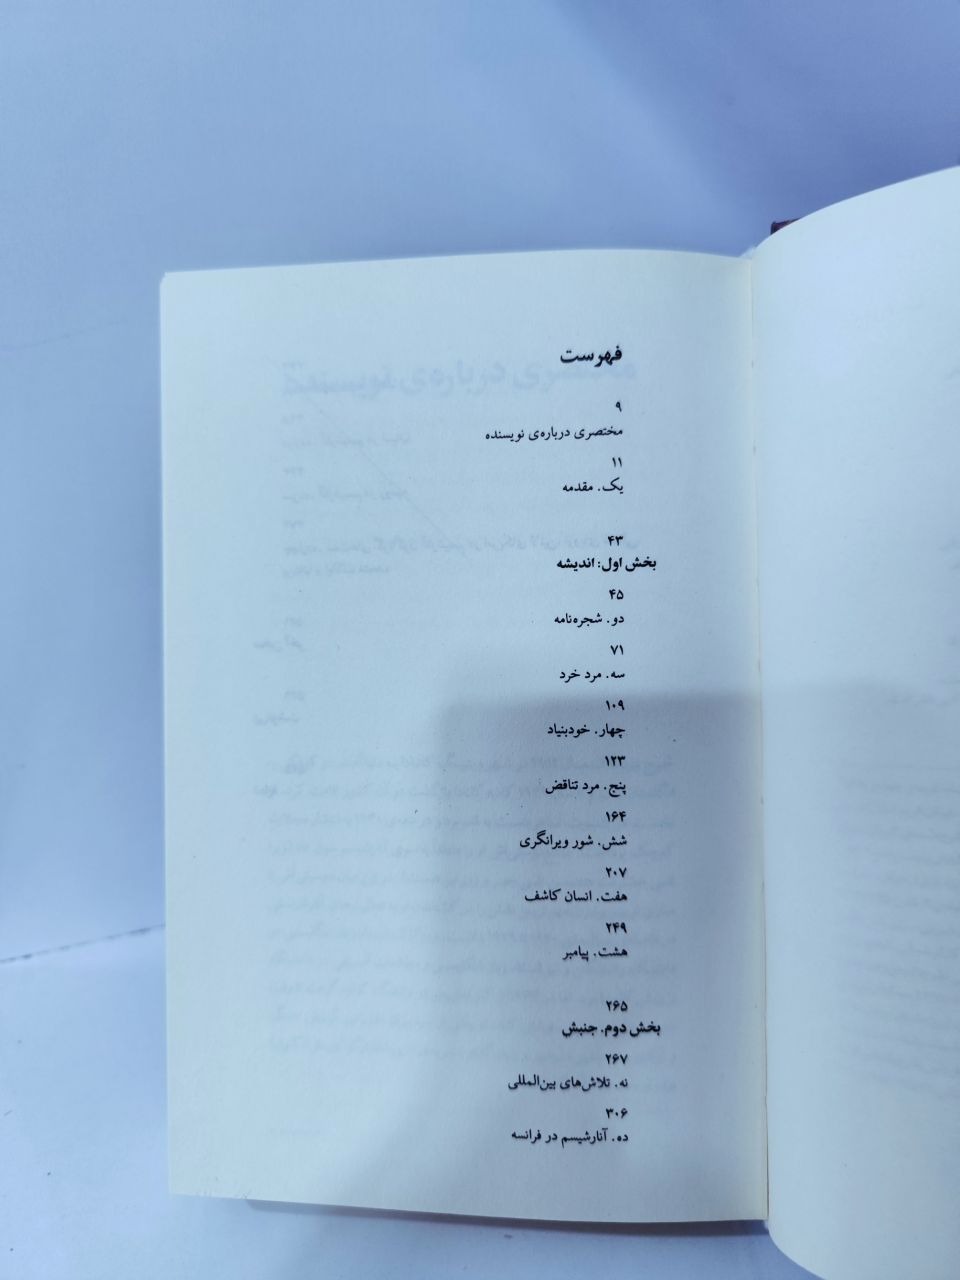 فهرست
۹
مختصری درباره‌ی نویسنده
۱۱
یک. مقدمه
۴۳
بخش اول: اندیشه
۴۵
دو. شجره‌نامه
۷۱
سه. مرد خرد
۱۰۹
چهار. خودبنیاد
۱۲۳
پنج. مرد تناقض
۱۶۴
شش. شور ویرانگری
۲۰۷
هفت. انسان کاشف
۲۴۹
هشت. پیامبر
۲۶۵
بخش دوم. جنبش
۲۶۷
نه. تلاش‌های بین‌المللی
۳۰۶
ده. آنارشیسم در فرانسه